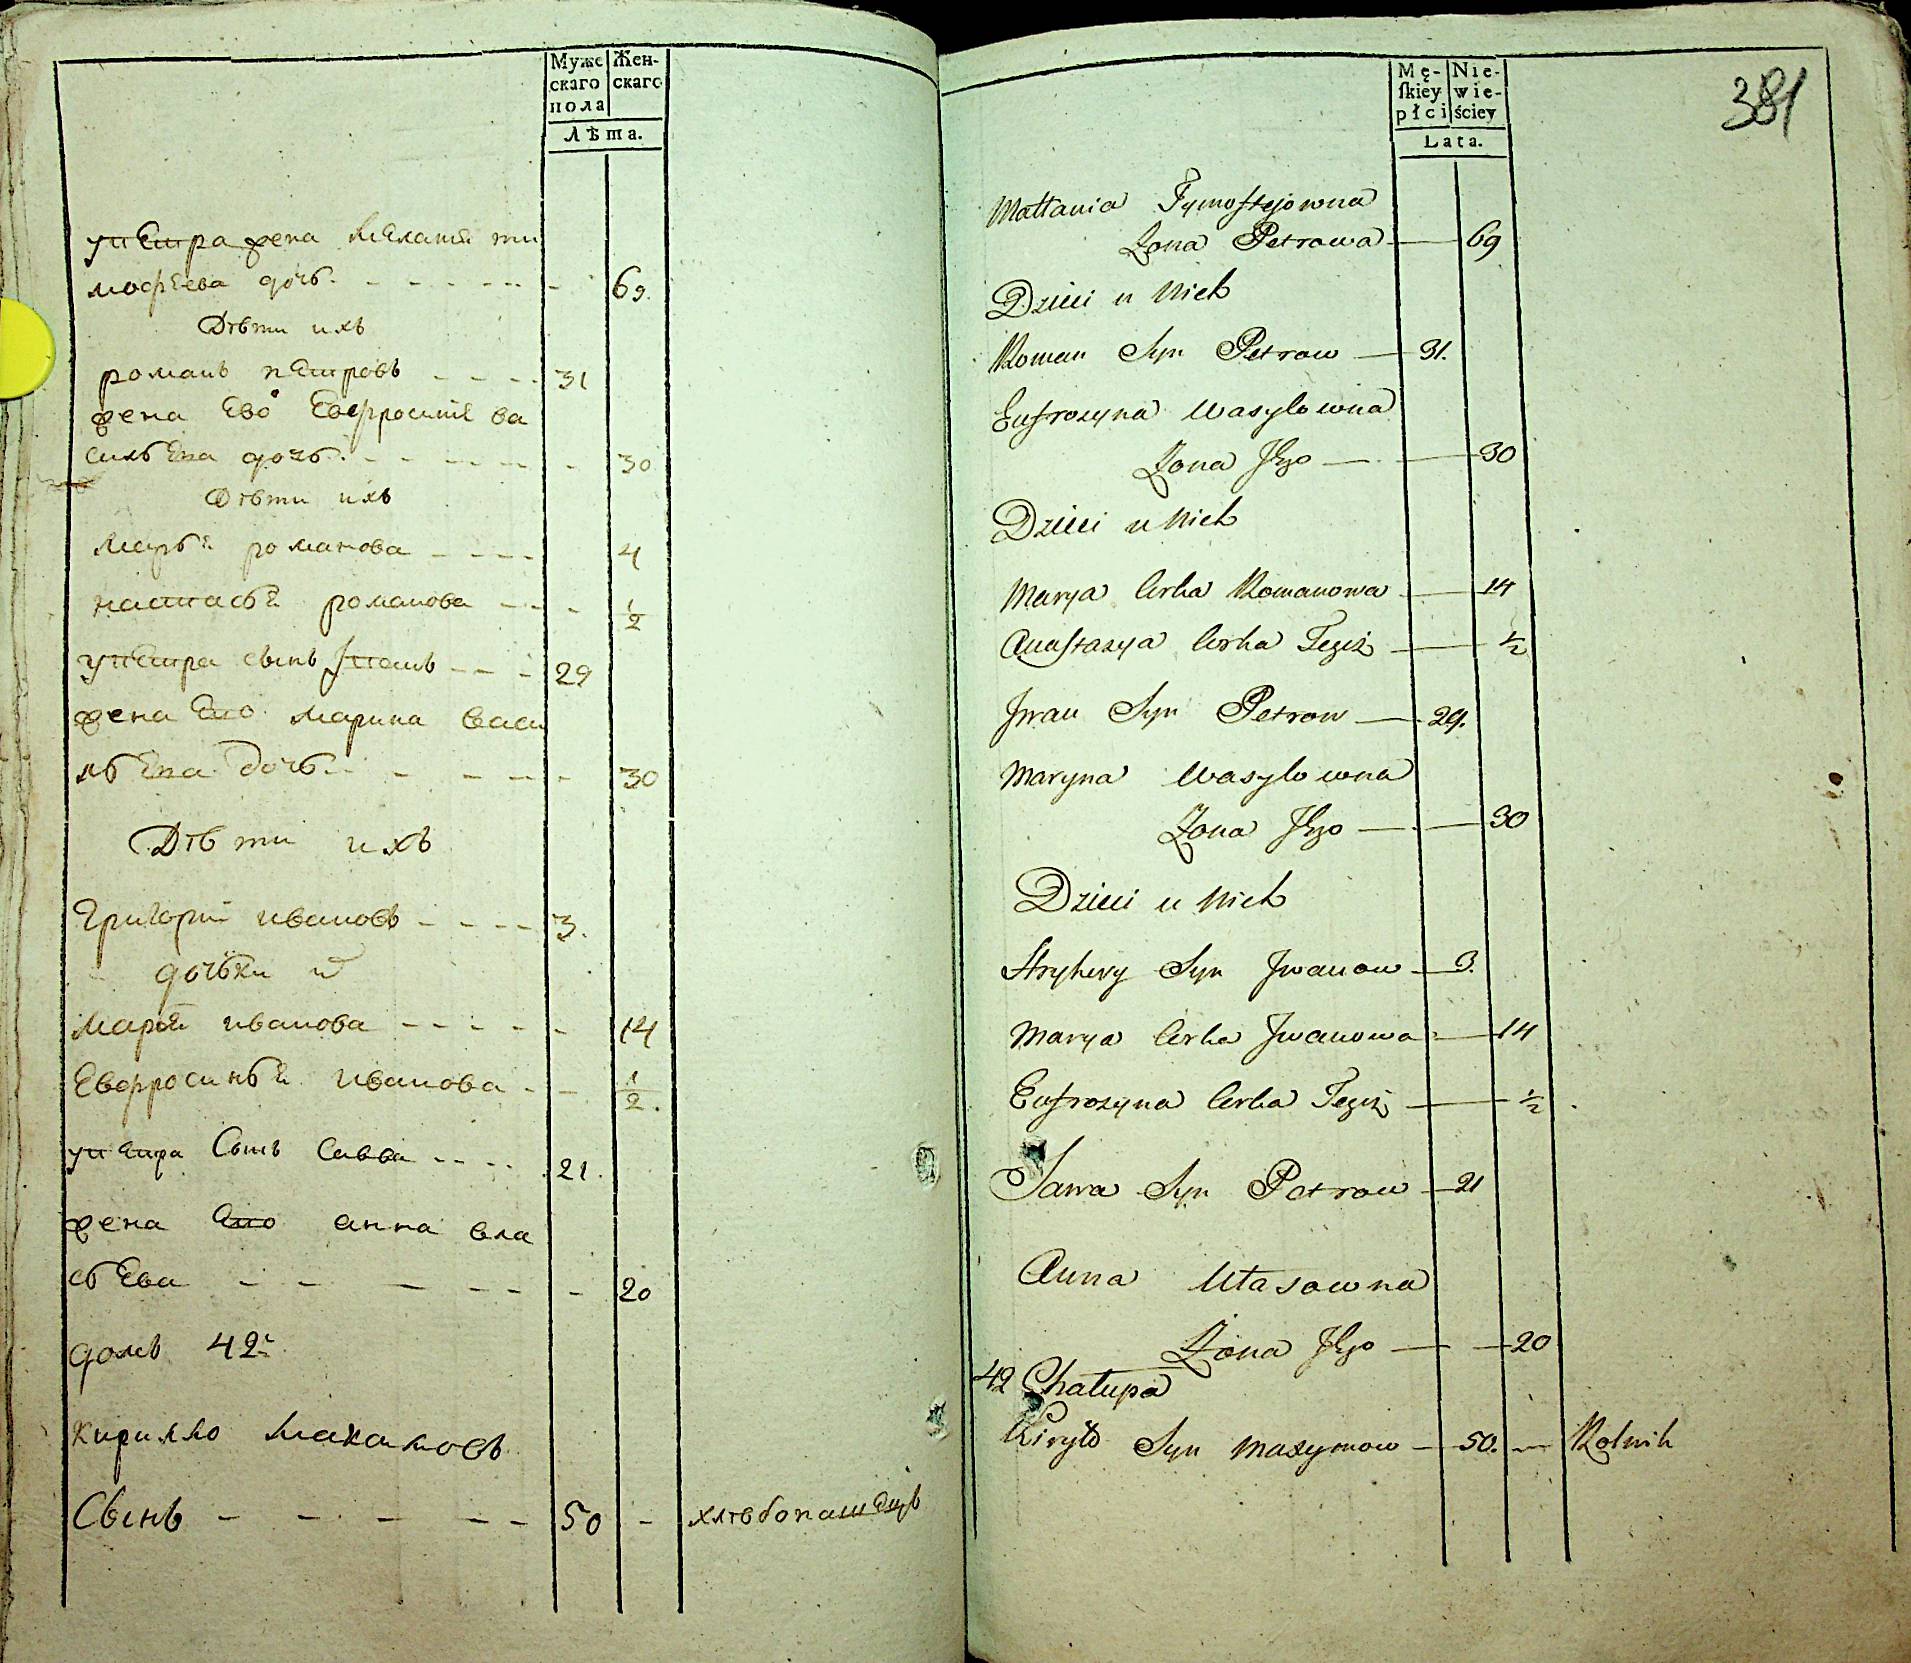 Муже
скаго
пола
Жен-
скаго
Лѣта.
упетра жена Меланiя ти
мофеева дочь. - - - - - 69.
Дѣти ихъ
романъ петровъ - - - - 31
жена ево Евфросинiя ва
сильева дочь. - - - - - 30
Дѣти ихъ
Марья романова - - - - 4
настасья романова - - - 1/2
упетра сынъ Iванъ - - - 29
жена Его марина васи
льева дочь. - - - - - 30
Дѣти ихъ
Григорiй ивановъ - - - - 3.
дочьки
Марья иванова - - - - - 14
Евфросинья Иванова - - 1/2.
упетра Сынъ Савва - - - - 21.
жена Его анна вла
сьева - - - - - - 20
домъ 42й
кирилло Макаимовъ
Сынъ - - - - - 50 - хлѣбопашецъ
381
Mę-
ſkiey
płci
Nie-
wie-
ściey
Lata.
Małania Tymofiejowna
Żona Petrowa — 69
Dzieci u Nich
Roman Syn Petrow — 31.
Eufrozyna Wasylowna
Żona Jego — 30
Dzieci u Nich
Marya Corka Romanowa — 14
Anastazya Corka Tegiż — 1/2
Jwan Syn Petrow — 29.
Maryna Wasylowna
Żona Jego — 30
Dzieci u Nich
Hryhory Syn Jwanow — 3.
Marya Corka Jwanowa — 14
Eufrozyna Corka Tegiż — 1/2
Sawa Syn Petrow — 21
Anna Ułasowna
Żona Jego — 20
42 Chałupa
Kiryło Syn Maxymow — 50. — Rolnik